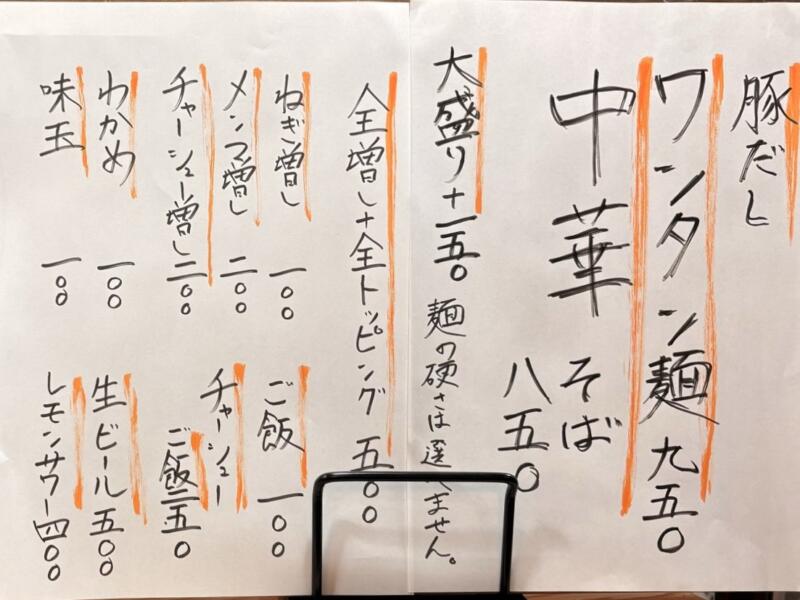 豚だし
ワンタン麺 九五〇
中華そば 八五〇
大盛り+一五〇
麺の硬さは選べません。
全増し+全トッピング 五〇〇
ねぎ増し 一〇〇
メンマ増し 二〇〇
チャーシュー増し 二〇〇
わかめ 一〇〇
味玉 一〇〇
ご飯 一〇〇
チャーシューご飯 二五〇
生ビール 五〇〇
レモンサワー 四〇〇